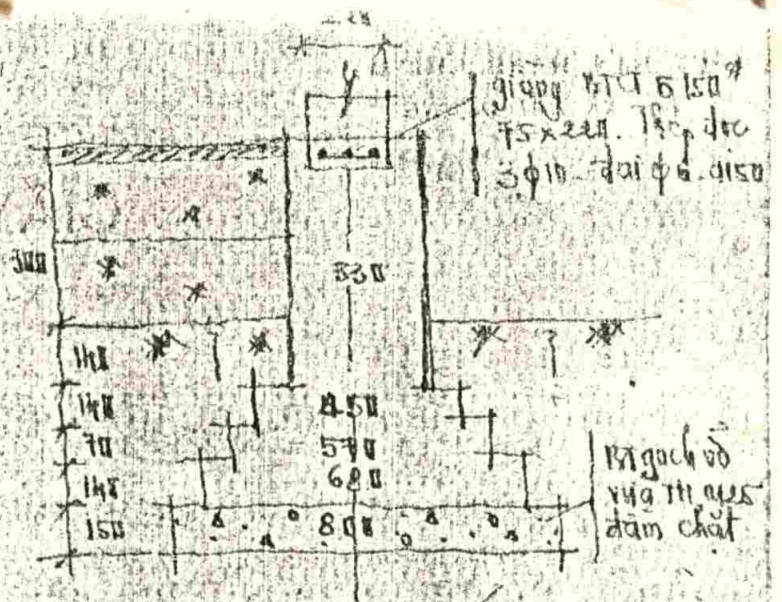 220
giằng BTCT б 150#
75x220. Thép dọc
3ϕ10 đai ϕ6 a150
300
330
140
140
450
70
570
140
680
150
800
BT gạch vỡ
vữa TH M25
đầm chặt